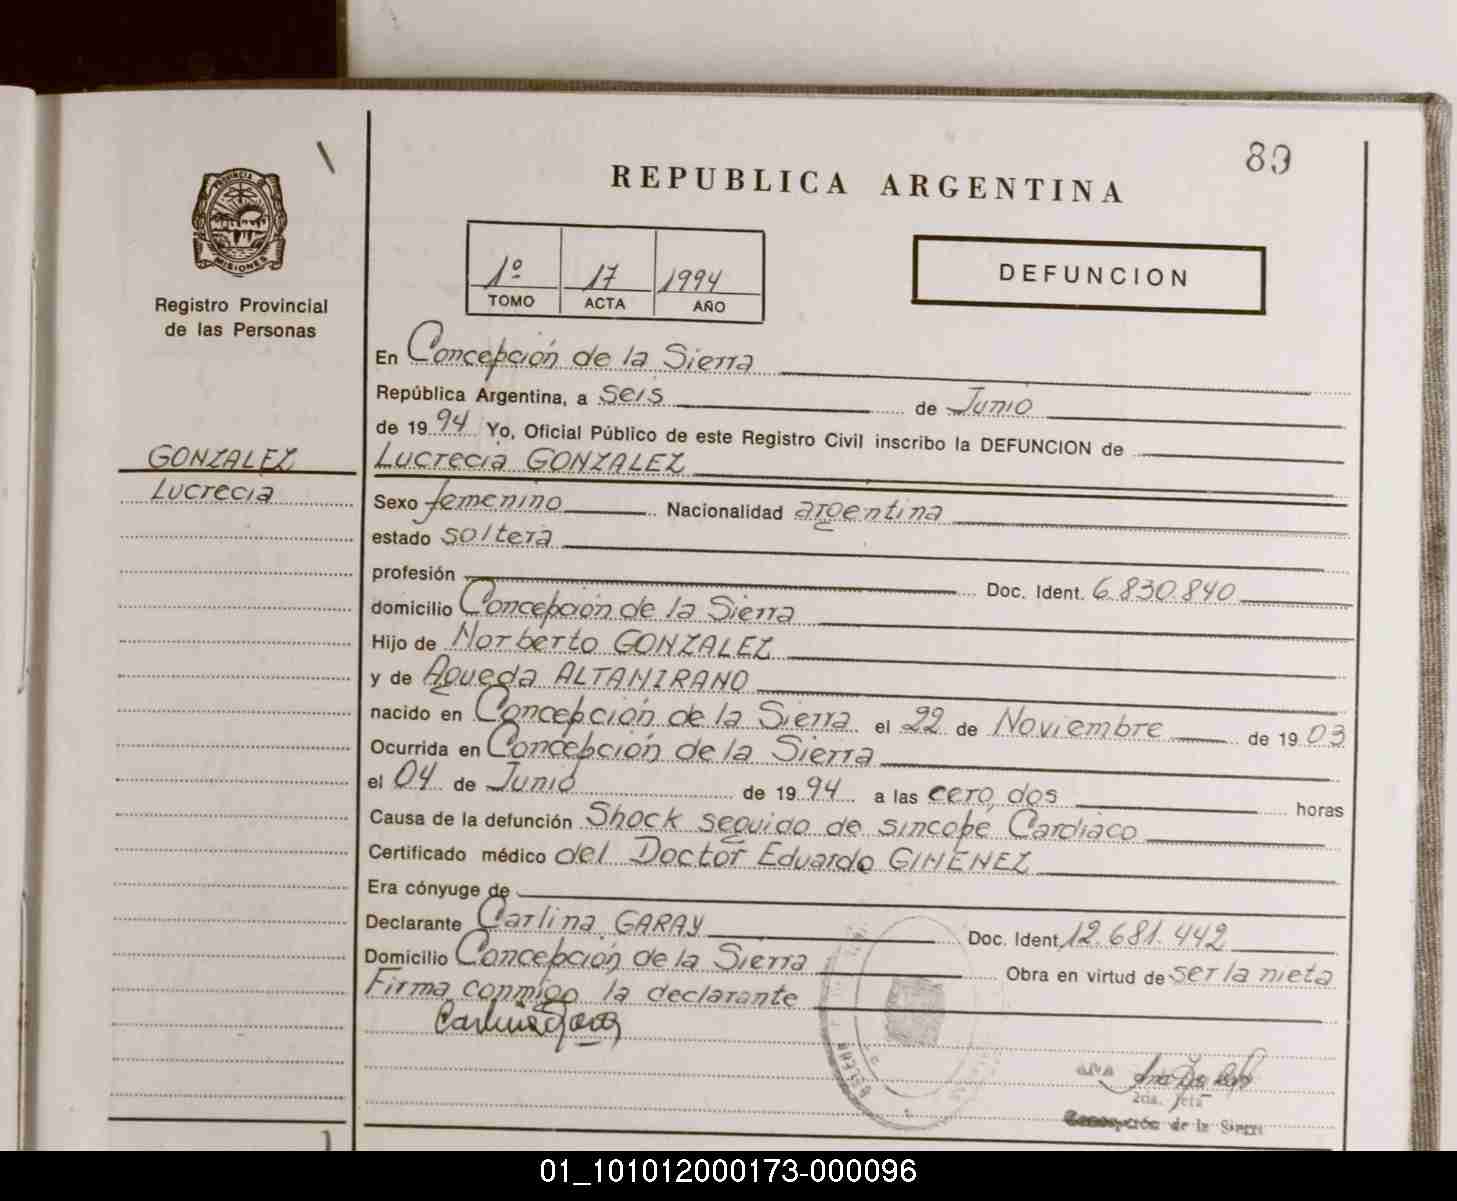 89
REPUBLICA ARGENTINA
PROVINCIA DE
MISIONES
Registro Provincial
de las Personas
1º 17 1994
TOMO ACTA AÑO
DEFUNCION
GONZALEZ
Lucrecia
En Concepción de la Sierra
República Argentina, a seis de Junio
de 1994 Yo, Oficial Público de este Registro Civil inscribo la DEFUNCION de
Lucrecia GONZALEZ
Sexo femenino Nacionalidad argentina
estado soltera
profesión Doc. Ident. 6.830.840
domicilio Concepción de la Sierra
Hijo de Norberto GONZALEZ
y de Agueda ALTAMIRANO
nacido en Concepción de la Sierra el 22 de Noviembre de 1903
Ocurrida en Concepción de la Sierra
el 04 de Junio de 1994 a las cero, dos horas
Causa de la defunción Shock seguido de sincope Cardiaco
Certificado médico del Doctor Eduardo GIMENEZ
Era cónyuge de
Declarante Carlina GARAY Doc. Ident. 12.681.442
Domicilio Concepción de la Sierra Obra en virtud de ser la nieta
Firma conmigo la declarante
Carlina Garay
2da. Jefa
Concepción de la Sierra
01_101012000173-000096